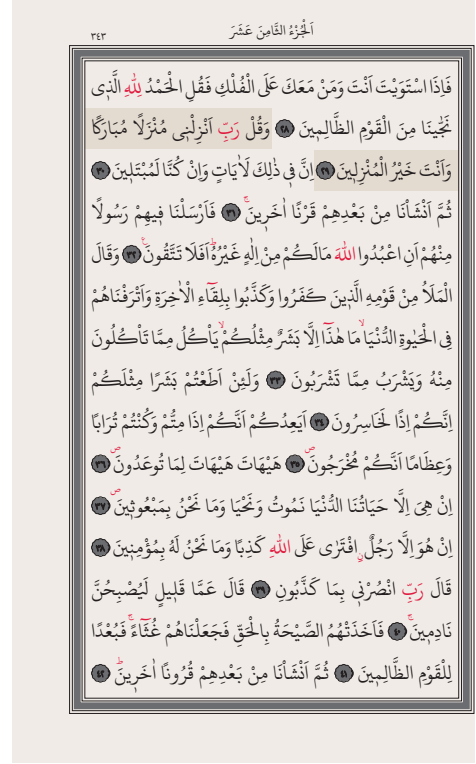 اَلْجُزْءُ الثَّامِنَ عَشَرَ
٣٤٣
فَاِذَا اسْتَوَيْتَ اَنْتَ وَمَنْ مَعَكَ عَلَى الْفُلْكِ فَقُلِ الْحَمْدُ لِلّٰهِ الَّذ۪ى
نَجّٰينَا مِنَ الْقَوْمِ الظَّالِم۪ينَ ﴿٢٨﴾ وَقُلْ رَبِّ اَنْزِلْن۪ى مُنْزَلًا مُبَارَكًا
وَاَنْتَ خَيْرُ الْمُنْزِل۪ينَ ﴿٢٩﴾ اِنَّ ف۪ى ذٰلِكَ لَاٰيَاتٍ وَاِنْ كُنَّا لَمُبْتَل۪ينَ ﴿٣٠﴾
ثُمَّ اَنْشَأْنَا مِنْ بَعْدِهِمْ قَرْنًا اٰخَر۪ينَۚ ﴿٣١﴾ فَاَرْسَلْنَا ف۪يهِمْ رَسُولًا
مِنْهُمْ اَنِ اعْبُدُوا اللّٰهَ مَالَكُمْ مِنْ اِلٰهٍ غَيْرُهُۜ اَفَلَا تَتَّقُونَ۟ ﴿٣٢﴾ وَقَالَ
الْمَلَاُ مِنْ قَوْمِهِ الَّذ۪ينَ كَفَرُوا وَكَذَّبُوا بِلِقَٓاءِ الْاٰخِرَةِ وَاَتْرَفْنَاهُمْ
فِى الْحَيٰوةِ الدُّنْيَاۙ مَا هٰذَٓا اِلَّا بَشَرٌ مِثْلُكُمْۙ يَأْكُلُ مِمَّا تَأْكُلُونَ
مِنْهُ وَيَشْرَبُ مِمَّا تَشْرَبُونَ ﴿٣٣﴾ وَلَئِنْ اَطَعْتُمْ بَشَرًا مِثْلَكُمْ
اِنَّكُمْ اِذًا لَخَاسِرُونَ ﴿٣٤﴾ اَيَعِدُكُمْ اَنَّكُمْ اِذَا مِتُّمْ وَكُنْتُمْ تُرَابًا
وَعِظَامًا اَنَّكُمْ مُخْرَجُونَۖ ﴿٣٥﴾ هَيْهَاتَ هَيْهَاتَ لِمَا تُوعَدُونَۖ ﴿٣٦﴾
اِنْ هِىَ اِلَّا حَيَاتُنَا الدُّنْيَا نَمُوتُ وَنَحْيَا وَمَا نَحْنُ بِمَبْعُوث۪ينَۖ ﴿٣٧﴾
اِنْ هُوَ اِلَّا رَجُلٌۨ افْتَرٰى عَلَى اللّٰهِ كَذِبًا وَمَا نَحْنُ لَهُ بِمُؤْمِن۪ينَ ﴿٣٨﴾
قَالَ رَبِّ انْصُرْن۪ى بِمَا كَذَّبُونِ ﴿٣٩﴾ قَالَ عَمَّا قَل۪يلٍ لَيُصْبِحُنَّ
نَادِم۪ينَۚ ﴿٤٠﴾ فَاَخَذَتْهُمُ الصَّيْحَةُ بِالْحَقِّ فَجَعَلْنَاهُمْ غُثَٓاءًۚ فَبُعْدًا
لِلْقَوْمِ الظَّالِم۪ينَ ﴿٤١﴾ ثُمَّ اَنْشَأْنَا مِنْ بَعْدِهِمْ قُرُونًا اٰخَر۪ينَۜ ﴿٤٢﴾